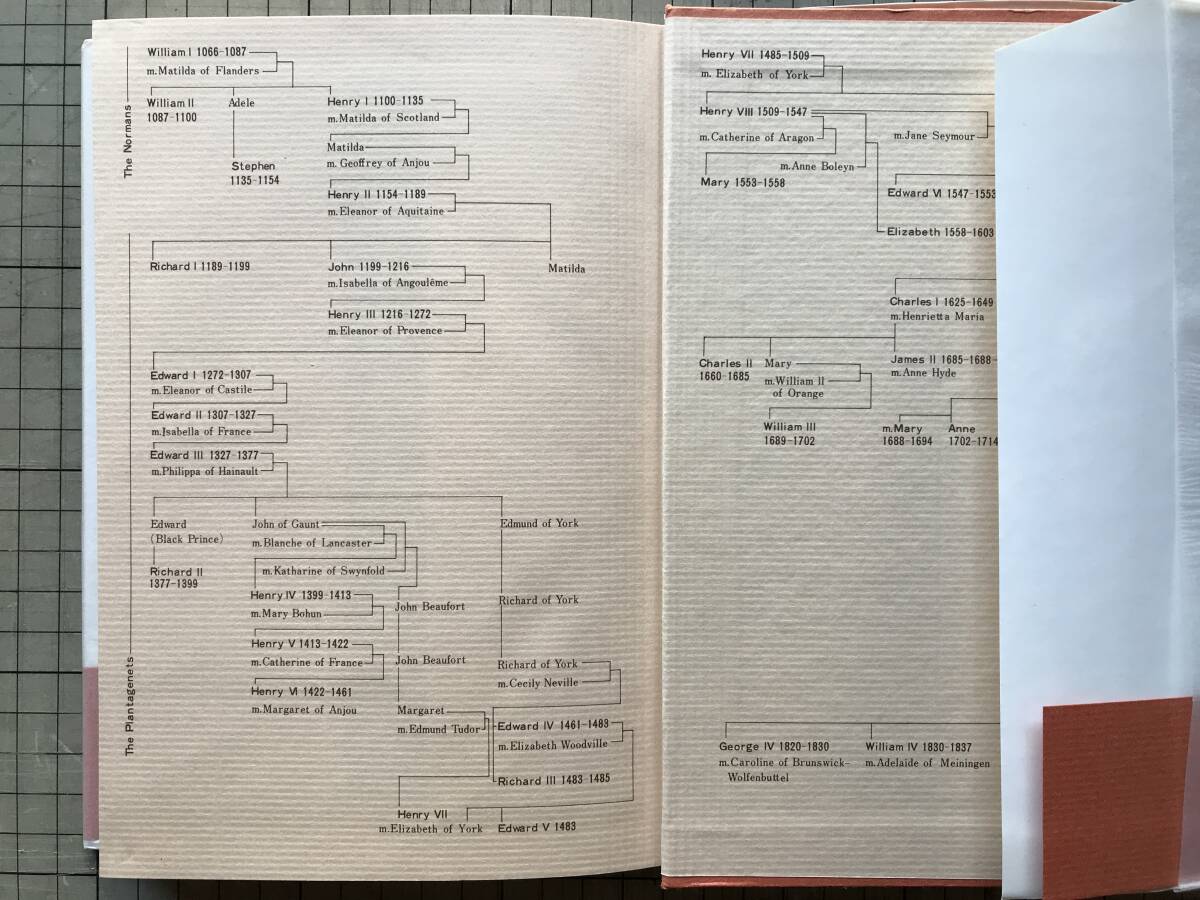 William I 1066-1087
m.Matilda of Flanders
The Normans
William II
1087-1100
Adele
Henry I 1100-1135
m.Matilda of Scotland
Stephen
1135-1154
Matilda
m. Geoffrey of Anjou
Henry II 1154-1189
m.Eleanor of Aquitaine
The Plantagenets
Richard I 1189-1199
John 1199-1216
m.Isabella of Angoulême
Matilda
Henry III 1216-1272
m.Eleanor of Provence
Edward I 1272-1307
m.Eleanor of Castile
Edward II 1307-1327
m.Isabella of France
Edward III 1327-1377
m.Philippa of Hainault
Edward
(Black Prince)
John of Gaunt
m.Blanche of Lancaster
m.Katharine of Swynfold
Edmund of York
Richard II
1377-1399
Henry IV 1399-1413
m.Mary Bohun
John Beaufort
Richard of York
Henry V 1413-1422
m.Catherine of France
John Beaufort
Richard of York
m.Cecily Neville
Henry VI 1422-1461
m.Margaret of Anjou
Margaret
m.Edmund Tudor
Edward IV 1461-1483
m.Elizabeth Woodville
Richard III 1483-1485
Henry VII
m.Elizabeth of York
Edward V 1483
Henry VII 1485-1509
m. Elizabeth of York
Henry VIII 1509-1547
m.Catherine of Aragon
m.Jane Seymour
m.Anne Boleyn
Mary 1553-1558
Edward VI 1547-1553
Elizabeth 1558-1603
Charles I 1625-1649
m.Henrietta Maria
Charles II
1660-1685
Mary
m.William II
of Orange
James II 1685-1688
m.Anne Hyde
William III
1689-1702
m.Mary
1688-1694
Anne
1702-1714
George IV 1820-1830
m.Caroline of Brunswick-
Wolfenbuttel
William IV 1830-1837
m.Adelaide of Meiningen